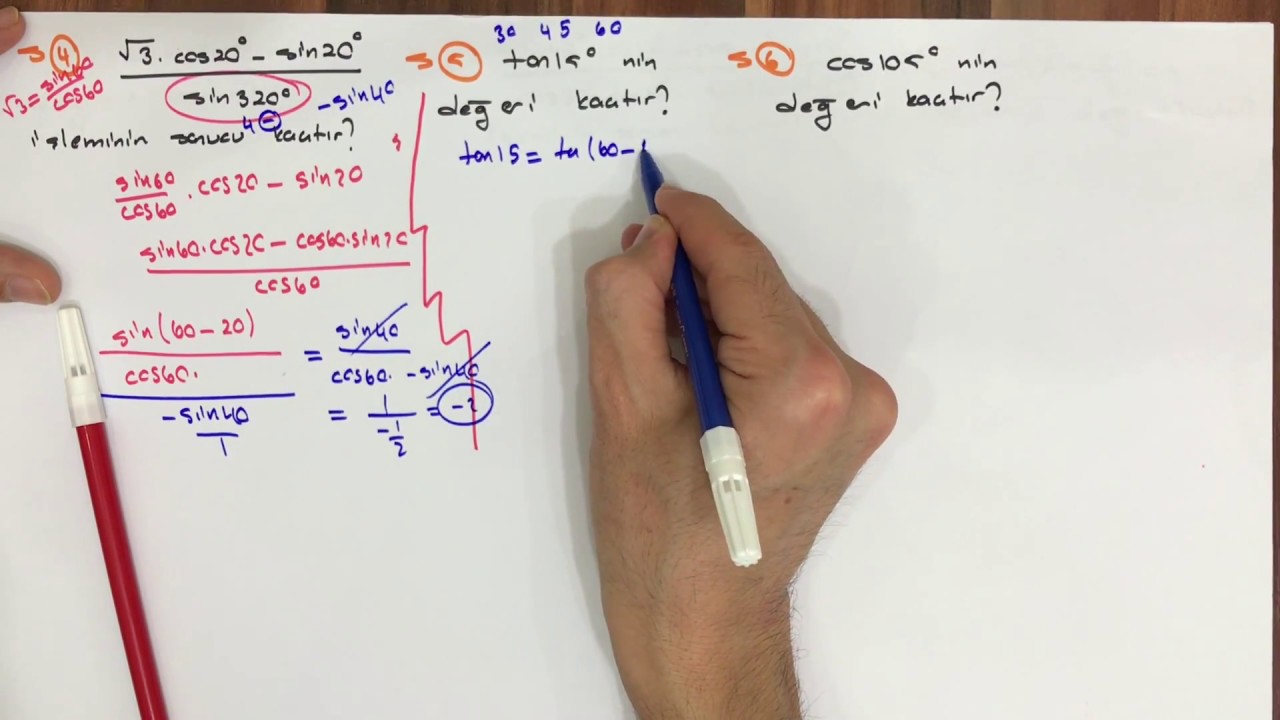 S 4
√3 . cos20° - sin20°
sin320°
-sin40
4 -
√3 = sin60
cos60
işleminin sonucu kaçtır?
sin60
cos60
. cos20 - sin20
sin60.cos20 - cos60.sin20
cos60
sin(60-20)
cos60.
-sin40
1
= sin40
cos60. -sin40
= 1
-1
2
= -2
30 45 60
S 5 tan15° nin
değeri kaçtır?
tan15 = tan(60-
S 6 cos105° nin
değeri kaçtır?